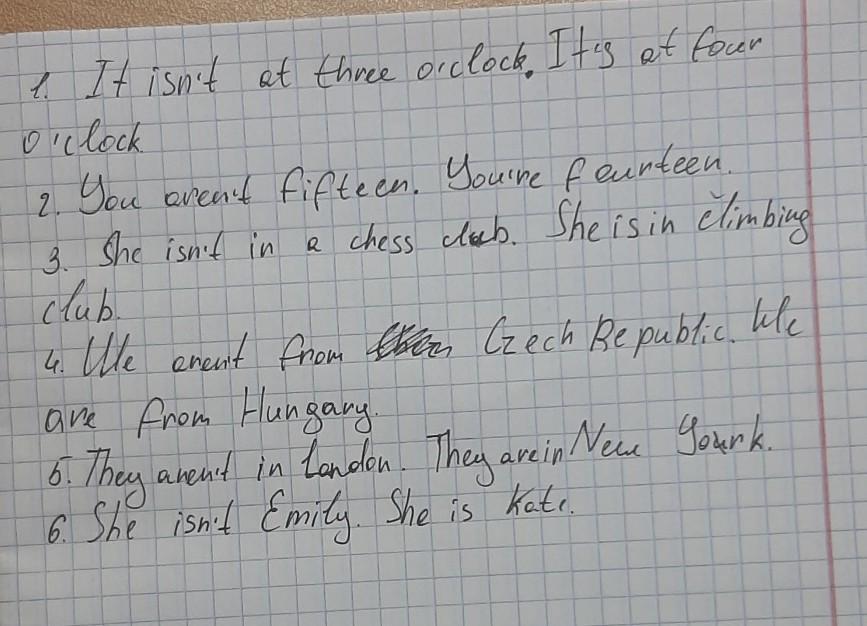 1. It isn't at three o'clock. It's at four
o'clock
2. You aren't fifteen. You're fourteen.
3. She isn't in a chess club. She is in climbing
club.
4. We aren't from Czech Republic. We
are from Hungary.
5. They aren't in London. They are in New Yourk.
6. She isn't Emily. She is Kate.